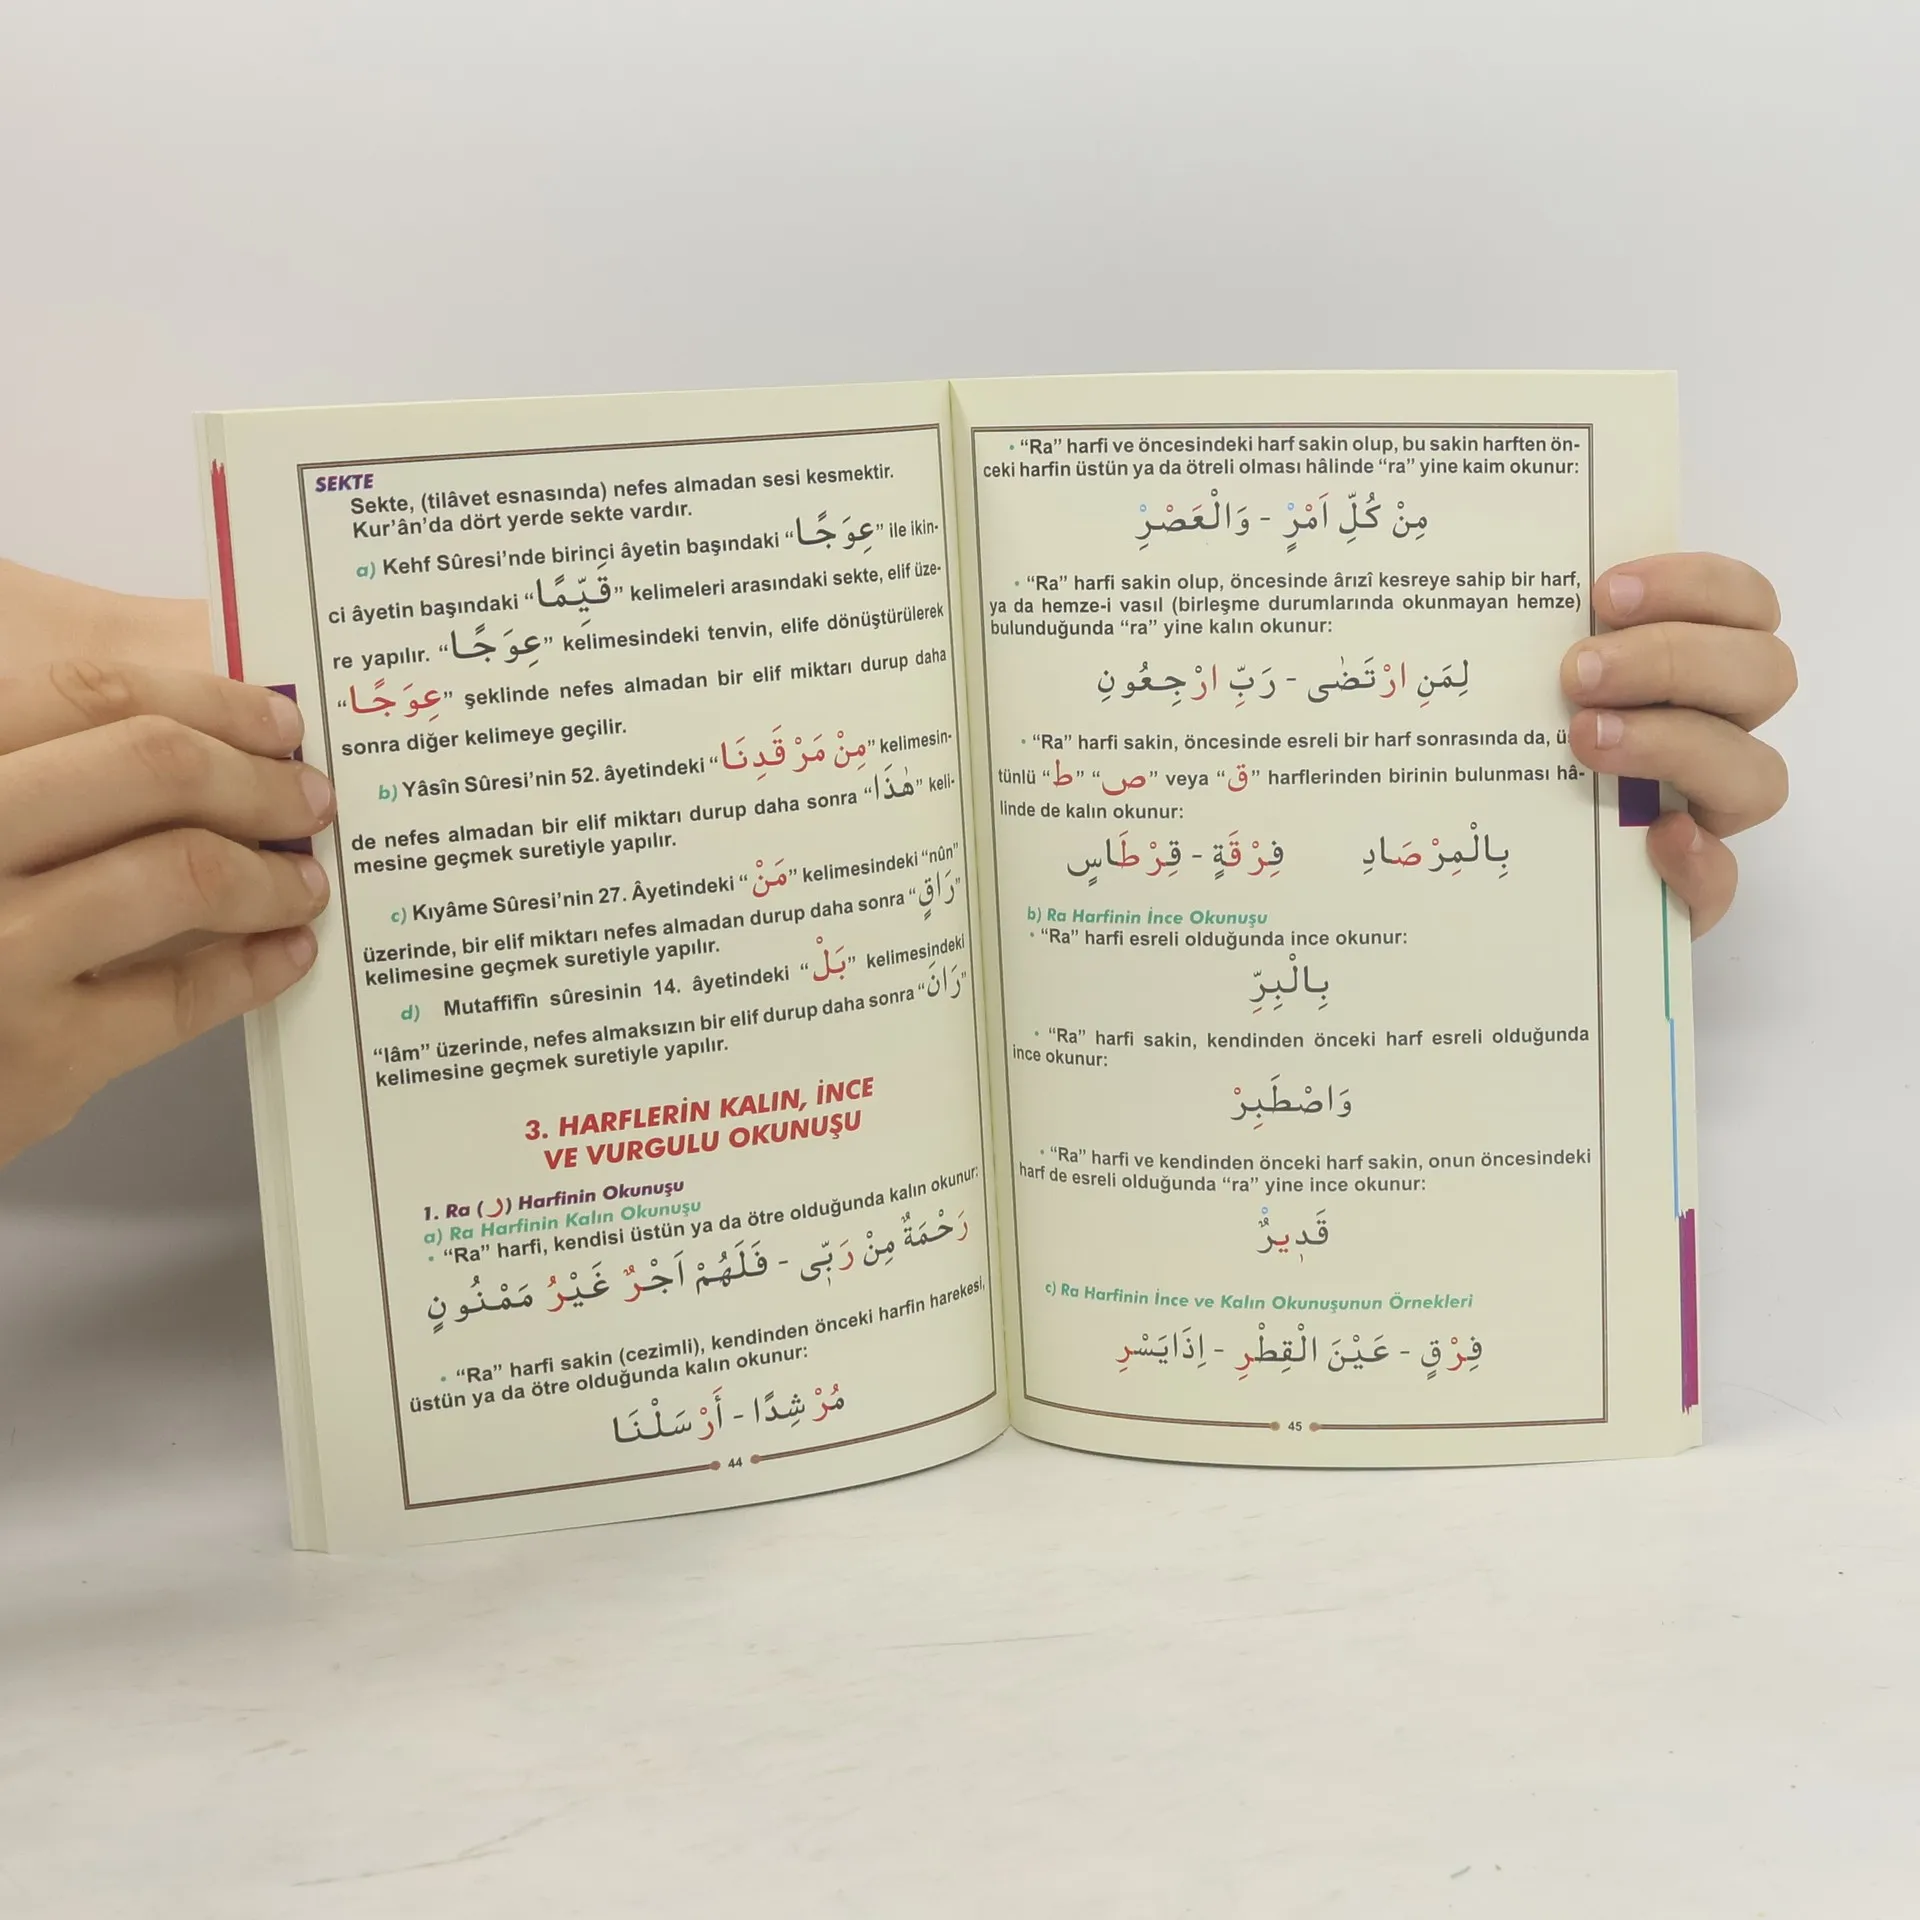 SEKTE
Sekte, (tilâvet esnasında) nefes almadan sesi kesmektir.
Kur'ân'da dört yerde sekte vardır.
a) Kehf Sûresi'nde birinci âyetin başındaki “عِوَجًا” ile ikin-
ci âyetin başındaki “قَيِّمًا” kelimeleri arasındaki sekte, elif üze-
re yapılır. “عِوَجًا” kelimesindeki tenvin, elife dönüştürülerek
“عِوَجًا” şeklinde nefes almadan bir elif miktarı durup daha
sonra diğer kelimeye geçilir.
b) Yâsîn Sûresi'nin 52. âyetindeki “مِنْ مَرْقَدِنَا” kelimesin-
de nefes almadan bir elif miktarı durup daha sonra “هٰذَا” keli-
mesine geçmek suretiyle yapılır.
c) Kıyâme Sûresi'nin 27. Âyetindeki “مَنْ” kelimesindeki “nûn”
üzerinde, bir elif miktarı nefes almadan durup daha sonra “رَاقٍ”
kelimesine geçmek suretiyle yapılır.
d) Mutaffifîn sûresinin 14. âyetindeki “بَلْ” kelimesindeki
“lâm” üzerinde, nefes almaksızın bir elif durup daha sonra “رَانَ”
kelimesine geçmek suretiyle yapılır.
3. HARFLERİN KALIN, İNCE
VE VURGULU OKUNUŞU
1. Ra (ر) Harfinin Okunuşu
a) Ra Harfinin Kalın Okunuşu
• “Ra” harfi, kendisi üstün ya da ötre olduğunda kalın okunur:
رَحْمَةٌ مِنْ رَبِّى - فَلَهُمْ اَجْرٌ غَيْرُ مَمْنُونٍ
• “Ra” harfi sakin (cezimli), kendinden önceki harfin harekesi,
üstün ya da ötre olduğunda kalın okunur:
مُرْشِدًا - أَرْسَلْنَا
44
• “Ra” harfi ve öncesindeki harf sakin olup, bu sakin harften ön-
ceki harfin üstün ya da ötreli olması hâlinde “ra” yine kaim okunur:
مِنْ كُلِّ اَمْرٍْ - وَالْعَصْرِْ
• “Ra” harfi sakin olup, öncesinde ârızî kesreye sahip bir harf,
ya da hemze-i vasıl (birleşme durumlarında okunmayan hemze)
bulunduğunda “ra” yine kalın okunur:
لِمَنِ ارْتَضٰى - رَبِّ ارْجِعُونِ
• “Ra” harfi sakin, öncesinde esreli bir harf sonrasında da,
tünlü “ط” “ص” veya “ق” harflerinden birinin bulunması hâ-
linde de kalın okunur:
بِالْمِرْصَادِ فِرْقَةٍ - قِرْطَاسٍ
b) Ra Harfinin İnce Okunuşu
• “Ra” harfi esreli olduğunda ince okunur:
بِالْبِرِّ
• “Ra” harfi sakin, kendinden önceki harf esreli olduğunda
ince okunur:
وَاصْطَبِرْ
• “Ra” harfi ve kendinden önceki harf sakin, onun öncesindeki
harf de esreli olduğunda “ra” yine ince okunur:
قَدٖيرٌْ
c) Ra Harfinin İnce ve Kalın Okunuşunun Örnekleri
فِرْقٍ - عَيْنَ الْقِطْرِ - اِذَايَسْرِ
45